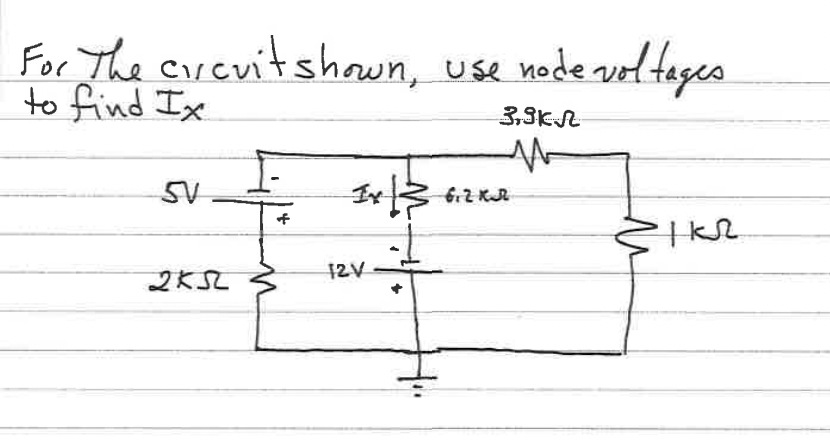 For The circuit shown, use node voltages
to find Ix
3,9KΩ
5V - +
Ix 6,2KΩ
1KΩ
2KΩ
12V - +